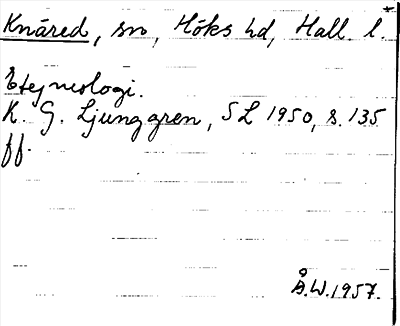 Knäred, sn, Höks hd, Hall. l.
Etymologi.
K. G. Ljunggren, SL 1950, s. 135
ff.
Å.W.1957.